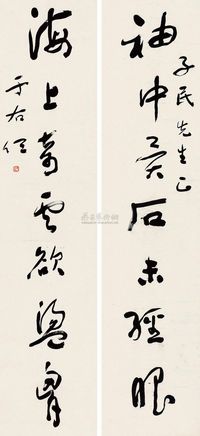 子民先生正
袖中異石未經眼
海上奇雲欲盪胸
于右任